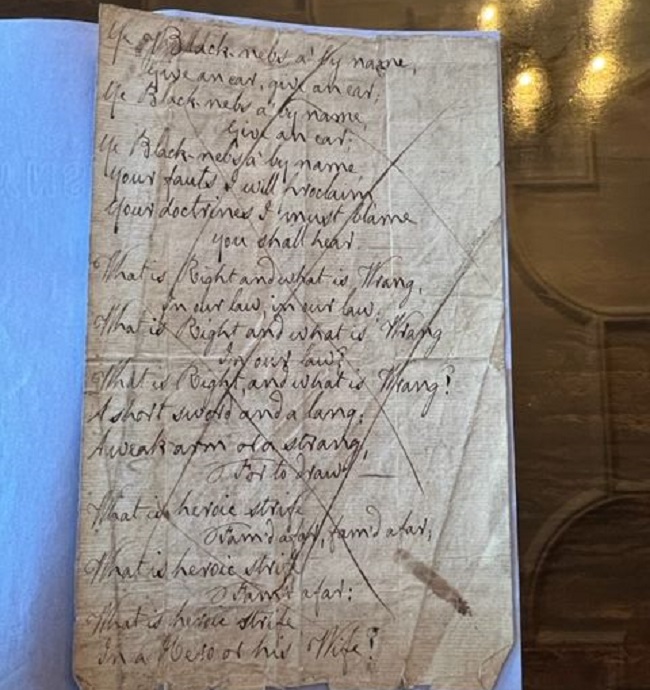 Ye Black-nebs a' by name,
Give an ear, give an ear,
Ye Black-nebs a' by name,
Give an ear;
Ye Black-nebs a' by name
Your fauts I will proclaim
Your doctrines I must blame
you shall hear
What is Right and what is Wrang,
In our law, in our law,
What is Right and what is Wrang
In our law?
What is Right, and what is Wrang?
A short sword and a lang,
A weak arm or a strang,
For to draw. —
What is heroic strife
Fam'd afar, fam'd afar,
What is heroic strife
Fam'd afar:
What is heroic strife
In a Hero or his Wife?